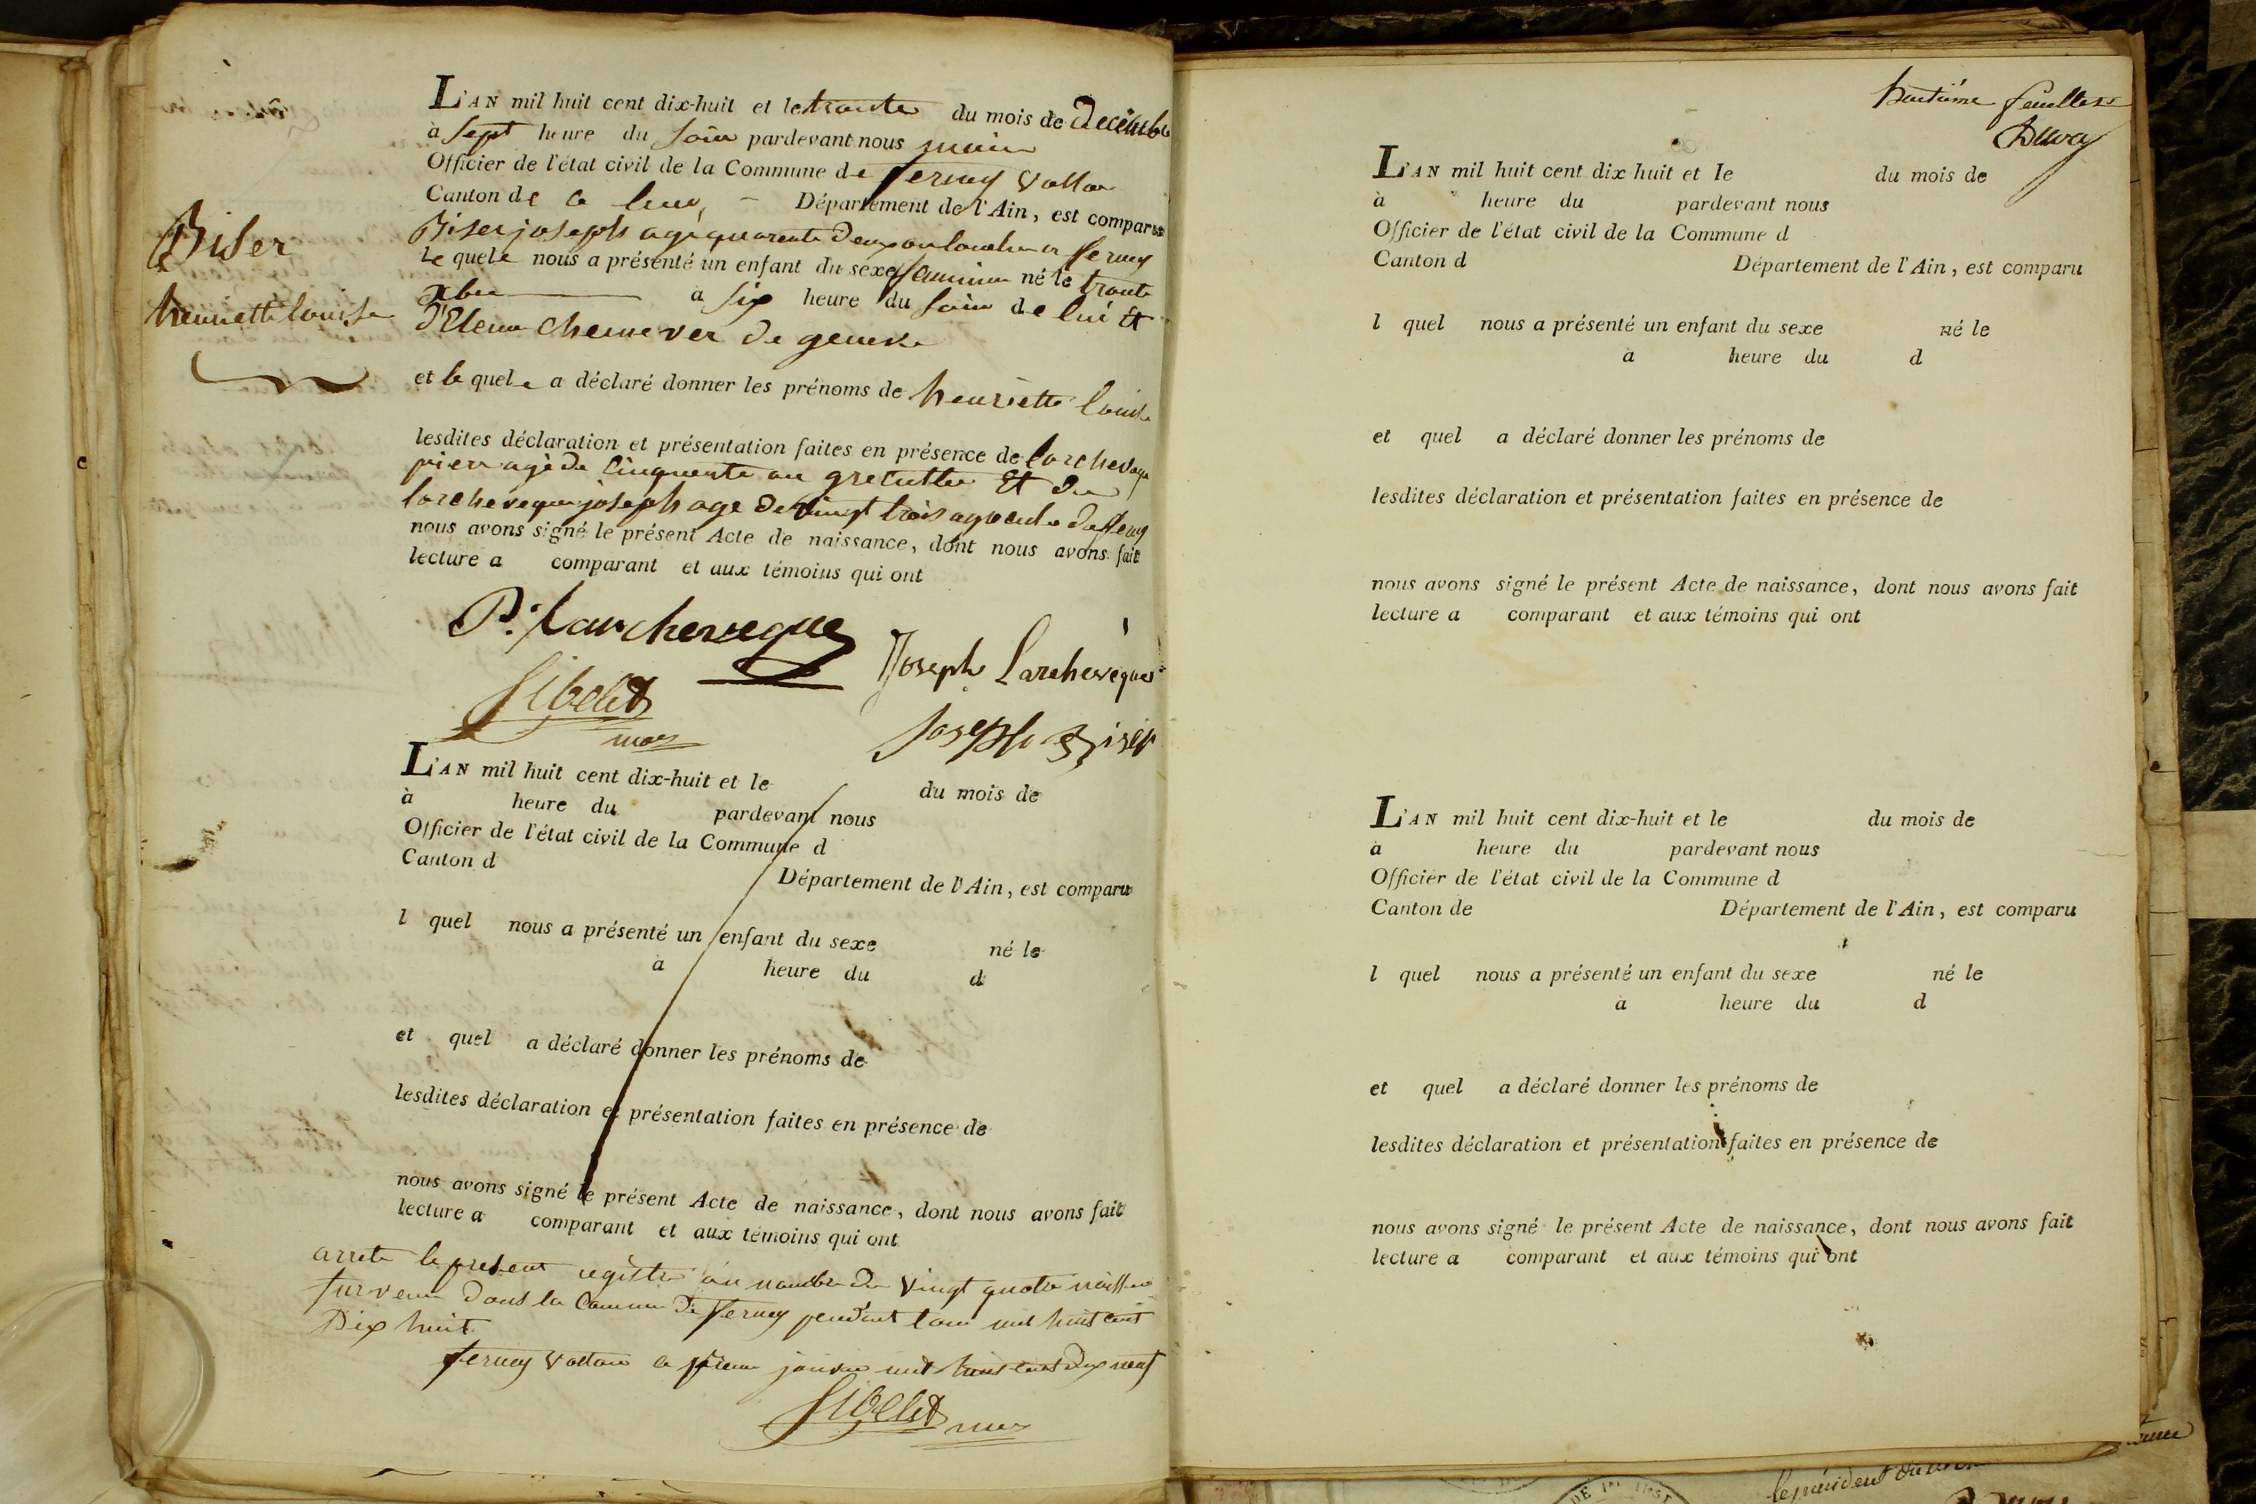 L'AN mil huit cent dix-huit et le trante du mois de Decembre
à sept heure du soir pardevant nous maire
Officier de l'état civil de la Commune de ferney Voltaire
Canton de Département de l'Ain, est comparu
Biser joseph agé quarente deux an ferney
le quel nous a présenté un enfant du sexe feminin né le trante
xbre à six heure du soir de lui Et
Biser
henriette louise
d'Elene de geneve
et le quel a déclaré donner les prénoms de henriette louise
lesdites déclaration et présentation faites en présence de larcheveque
pierre agé de cinquente an Et de
larcheveque joseph age de vingt trois
nous avons signé le présent Acte de naissance, dont nous avons fait
lecture a comparant et aux témoins qui ont
P. Larcheveque
Joseph Larcheveque
joseph Biser
L'AN mil huit cent dix-huit et le du mois de
à heure du pardevant nous
Officier de l'état civil de la Commune d
Canton d Département de l'Ain, est comparu
l quel nous a présenté un enfant du sexe né le
à heure du d
et quel a déclaré donner les prénoms de
lesdites déclaration et présentation faites en présence de
nous avons signé le présent Acte de naissance, dont nous avons fait
lecture a comparant et aux témoins qui ont
arrete le present registre au nombre de vingt quatre
dans la Commune de ferney pendant lan mil huit cent
Dix huit
ferney Voltaire janvier mil huit cent dix neuf
huitième
L'AN mil huit cent dix huit et le du mois de
à heure du pardevant nous
Officier de l'état civil de la Commune d
Canton d Département de l'Ain, est comparu
l quel nous a présenté un enfant du sexe né le
à heure du d
et quel a déclaré donner les prénoms de
lesdites déclaration et présentation faites en présence de
nous avons signé le présent Acte de naissance, dont nous avons fait
lecture a comparant et aux témoins qui ont
L'AN mil huit cent dix-huit et le du mois de
à heure du pardevant nous
Officier de l'état civil de la Commune d
Canton de Département de l'Ain, est comparu
l quel nous a présenté un enfant du sexe né le
à heure du d
et quel a déclaré donner les prénoms de
lesdites déclaration et présentation faites en présence de
nous avons signé le présent Acte de naissance, dont nous avons fait
lecture a comparant et aux témoins qui ont